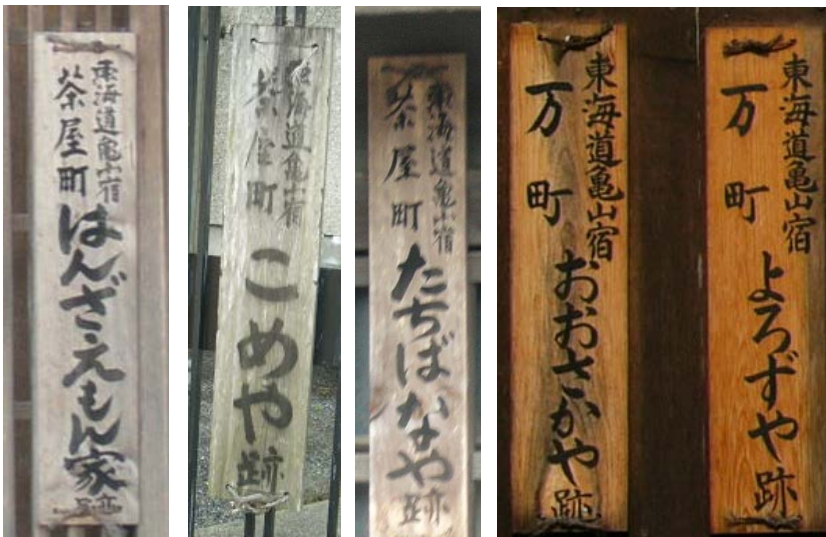 東海道亀山宿
茶屋町
はんざえもん家跡
東海道亀山宿
茶屋町
こめや跡
東海道亀山宿
茶屋町
たちばなや跡
東海道亀山宿
万町
おおさかや跡
東海道亀山宿
万町
よろずや跡